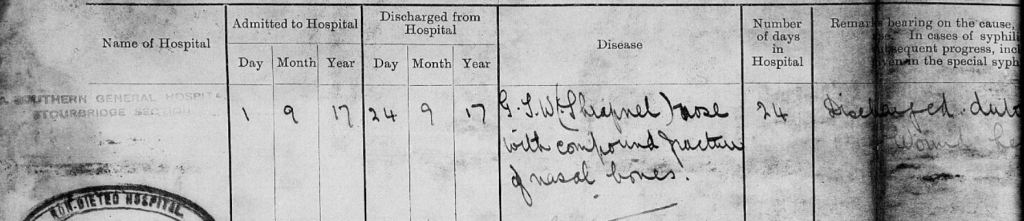 Name of Hospital
Admitted to Hospital
Day Month Year
Discharged from
Hospital
Day Month Year
Disease
Number
of days
in
Hospital
Remarks bearing on the cause,
In cases of syphili
subsequent progress, incl
given in the special syph
SOUTHERN GENERAL HOSPITA
STOURBRIDGE SECTION
1 9 17 24 9 17 G.S.W (Shrapnel) nose 24 Discharged
with compound fracture
of nasal bones.
wound
NON-DIETED HOSPITAL